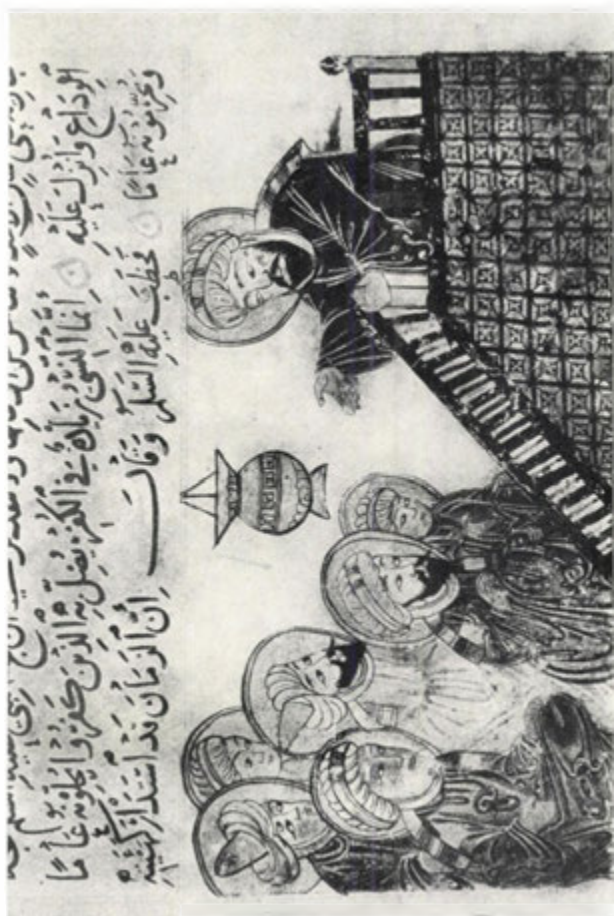 الوداع وانزل عليه انما النسى زيادة فى الكفر يضل به الذين كفروا يحلونه عاما
ويحرمونه عاما فخطب عليه السلم وقال ان الزمان قد استدار كهيئة